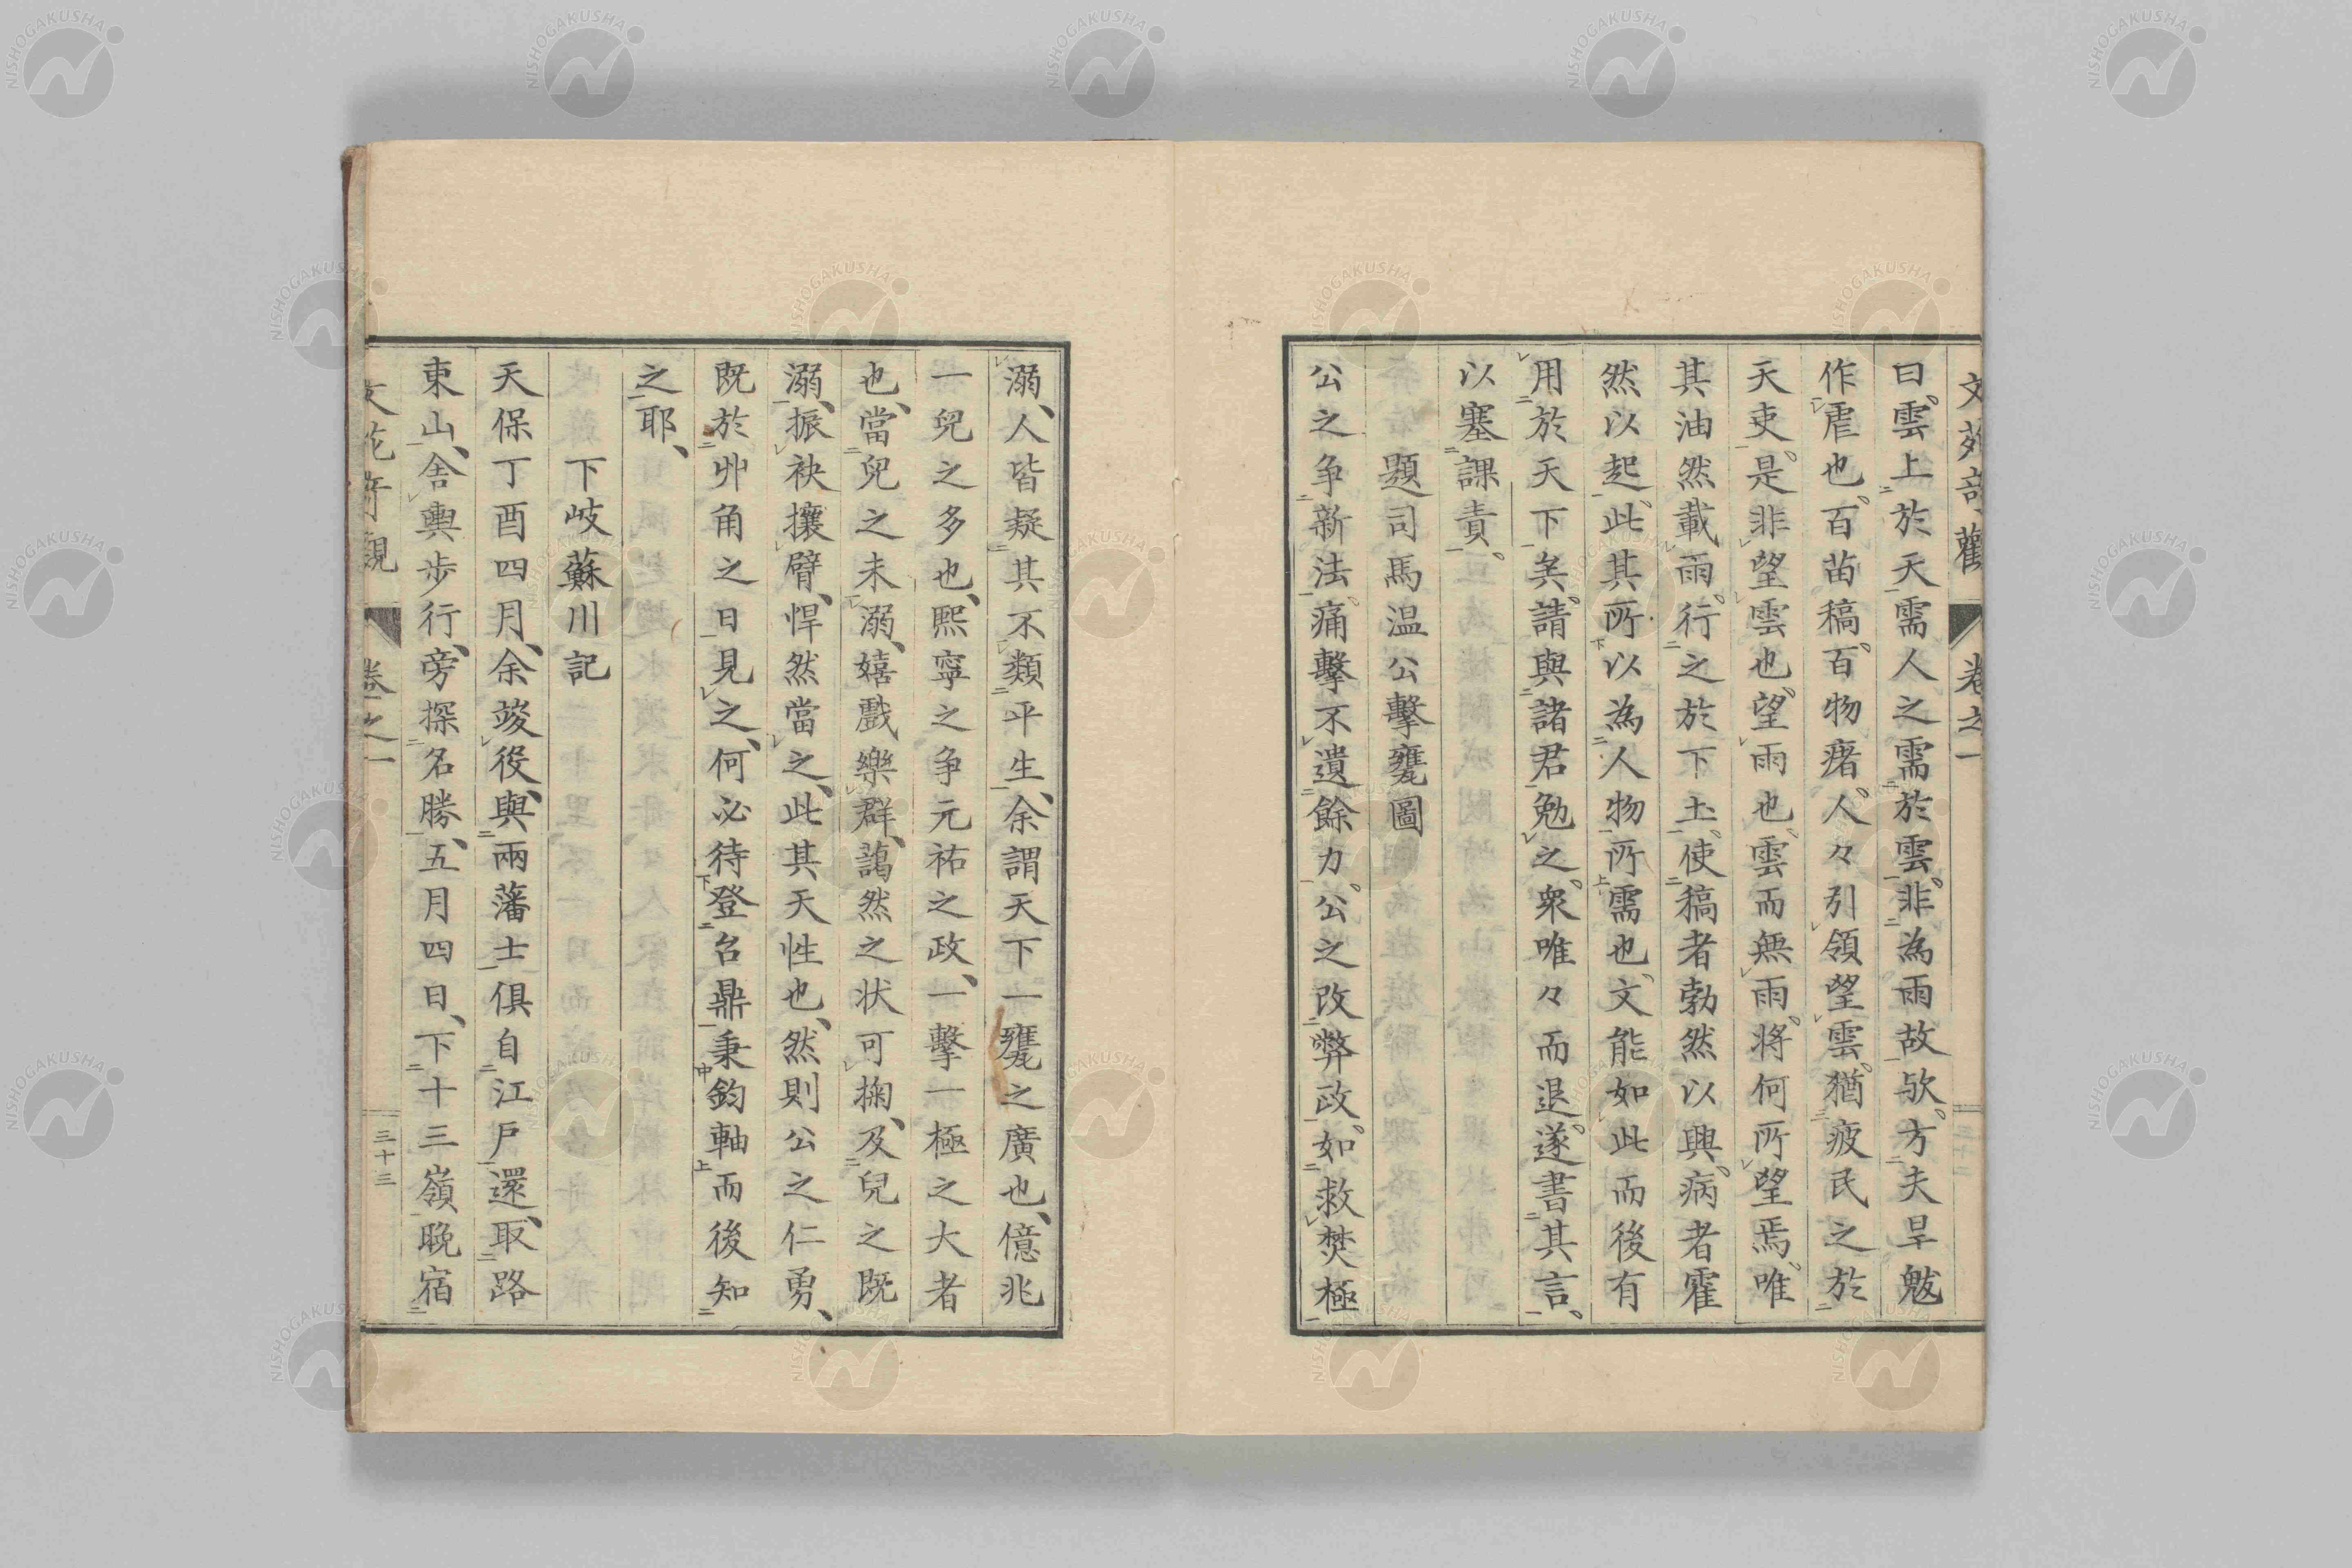 文苑竒觀 卷之一
曰、雲上於天、需人之需於雲、非為雨故欤、方夫旱魃
作虐也、百苗稿、百物瘏、人々引領望雲、猶疲民之於
天吏、是非望雲也、望雨也、雲而無雨、将何所望焉、唯
其油然載雨、行之於下土、使稿者勃然以興、病者霍
然以起、此其所以為人物所需也、文能如此而後有
用於天下矣、請與諸君勉之、衆唯々而退、遂書其言、
以塞課責、
題司馬温公擊甕圖
公之争新法、痛擊不遺餘力、公之改弊政、如救焚極
溺、人皆疑其不類平生、余謂天下一甕之廣也、億兆
一兒之多也、熙寧之争元祐之政、一擊一極之大者
也、當兒之未溺、嬉戲樂群、藹然之状可掬、及兒之既
溺、振袂攘臂、悍然當之、此其天性也、然則公之仁勇、
既於丱角之日見之、何必待登台鼎秉鈞軸而後知
之耶、
下岐蘇川記
天保丁酉四月、余竣役、與兩藩士俱自江戸還、取路
東山、舍輿步行、旁探名勝、五月四日、下十三嶺晚宿
文苑竒觀 卷之一 三十三
NISHOGAKUSHA